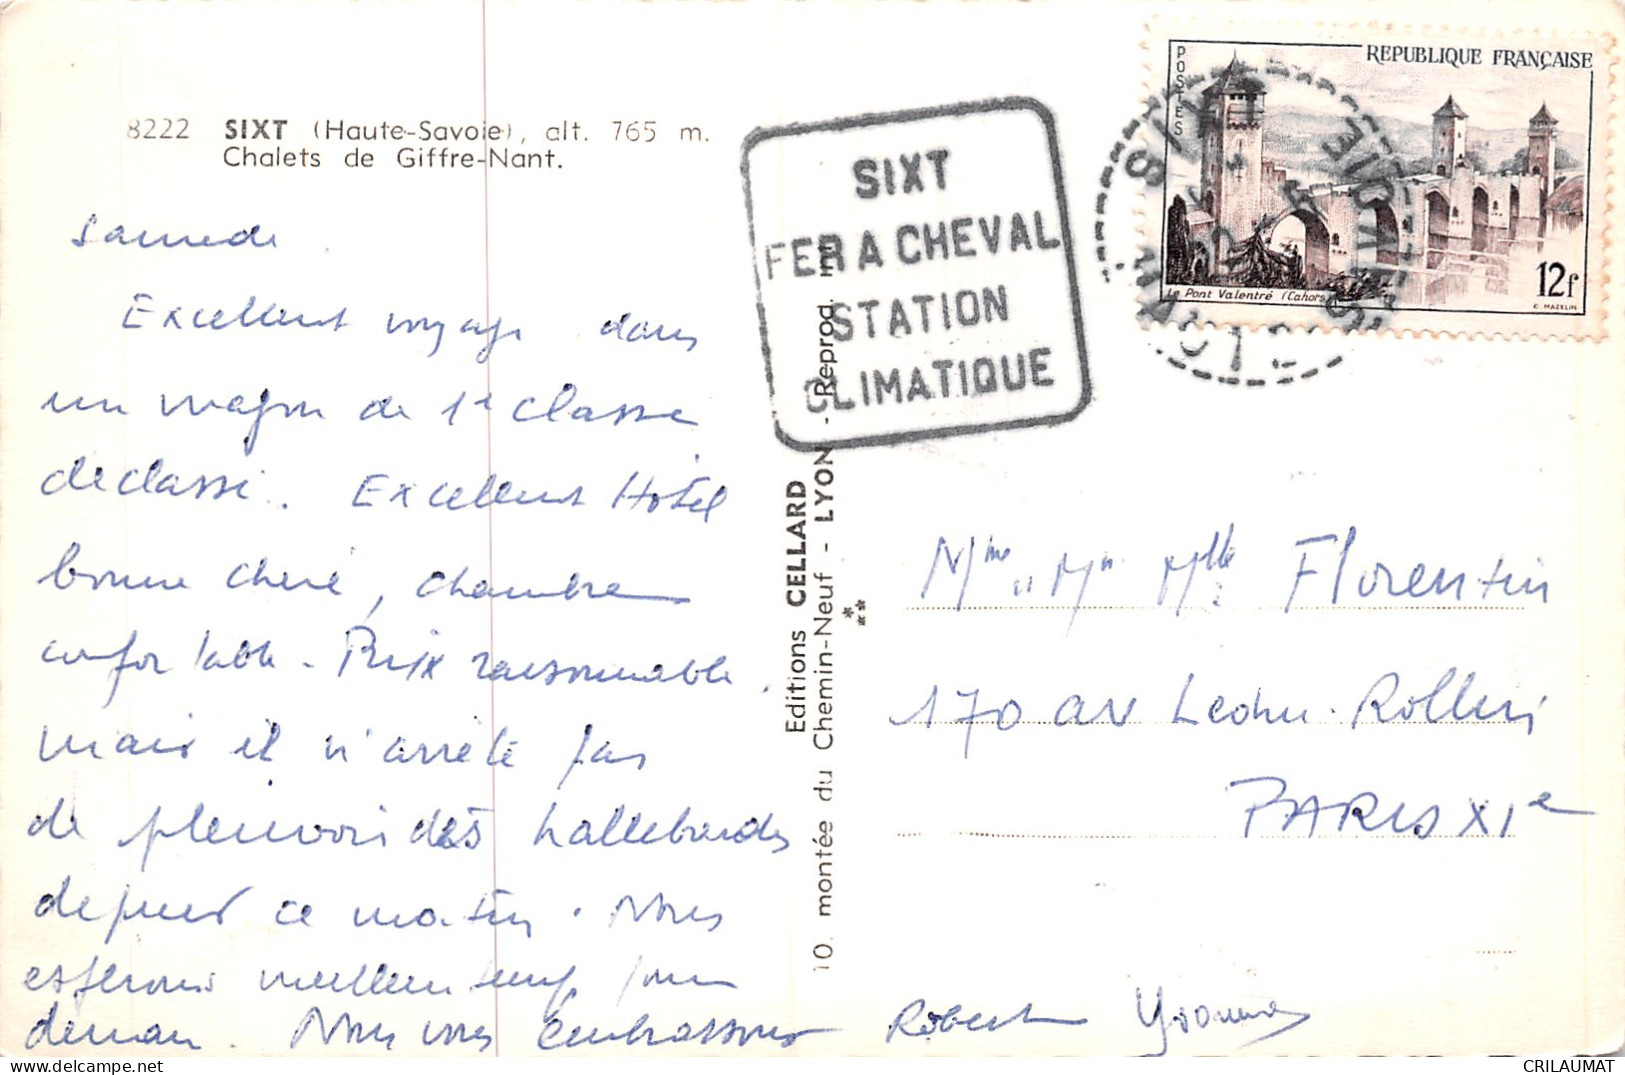 8222 SIXT (Haute-Savoie), alt. 765 m.
Chalets de Giffre-Nant.
Samedi
Excellent voyage dans
un wagon de 1e classe
declassé. Excellent Hôtel
bonne chere, chambre
confortable - Prix raisonnable.
mais il n'arrête pas
de pleuvoir des hallebardes
depuis ce matin. Nous
esperons meilleur temps pour
demain. Nous vous embrassons
Robert Yvonne
SIXT
FER A CHEVAL
STATION
CLIMATIQUE
Editions CELLARD
10, montée du Chemin-Neuf - LYON - Reprod. int
POSTES
REPUBLIQUE FRANÇAISE
12f
Le Pont Valentré (Cahors)
C. MAZELIN
Mme Mr Mlle Florentin
170 av Ledru-Rollin
PARIS XIe
CRILAUMAT